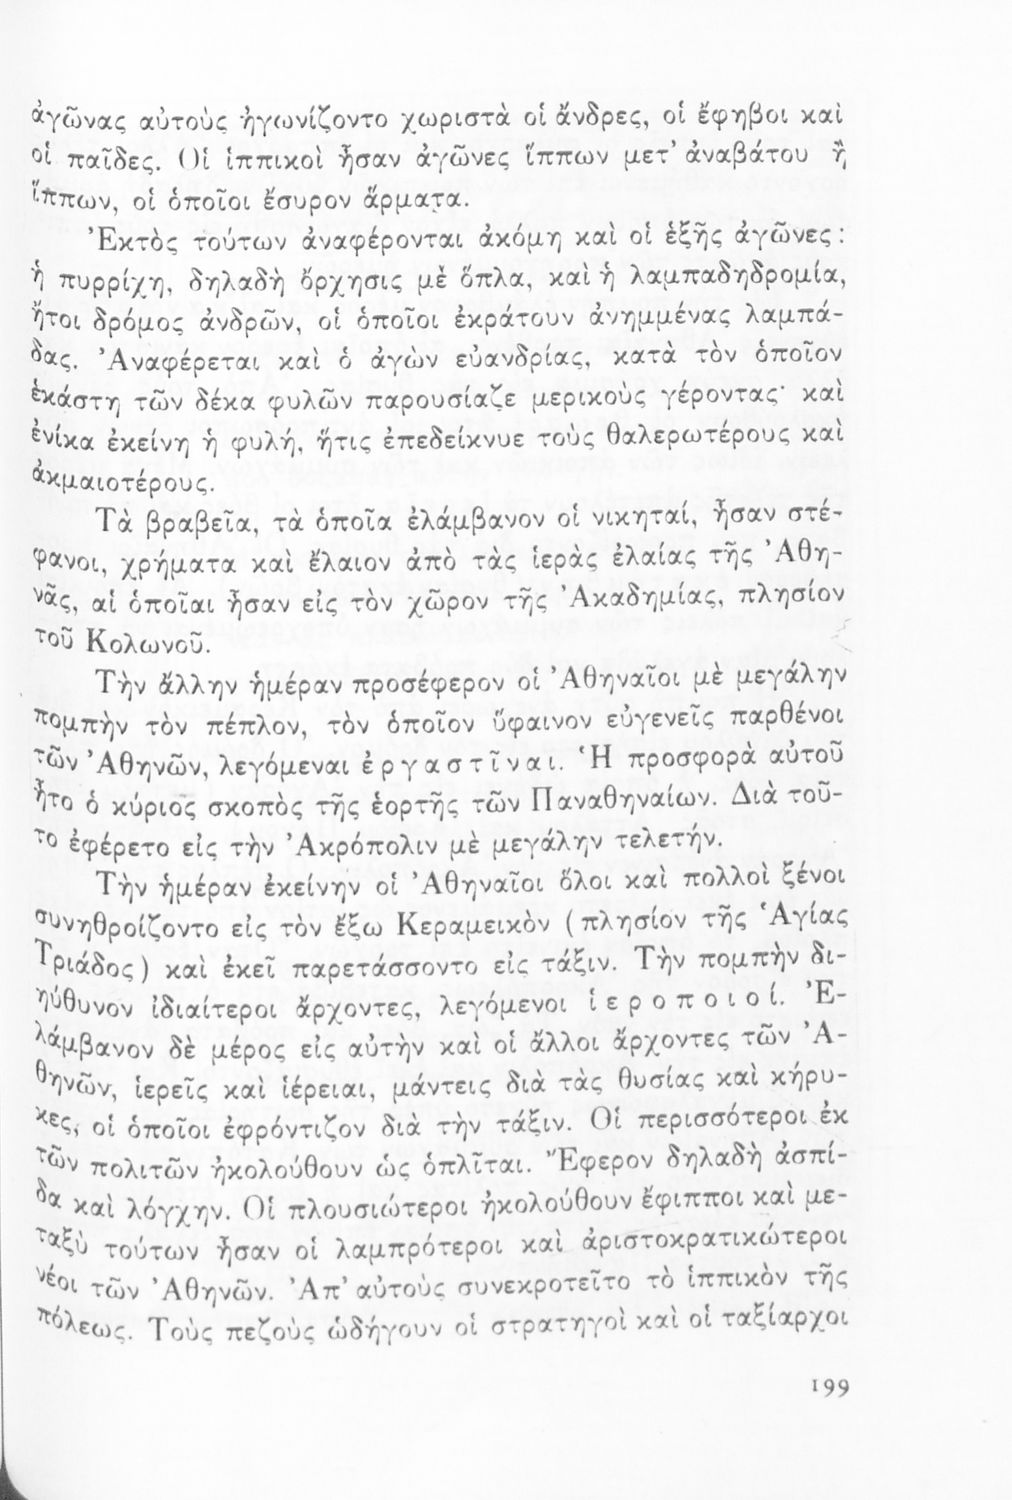 ἀγῶνας αὐτοὺς ἠγωνίζοντο χωριστὰ οἱ ἄνδρες, οἱ ἔφηβοι καὶ
οἱ παῖδες. Οἱ ἱππικοὶ ἦσαν ἀγῶνες ἵππων μετ’ ἀναβάτου ἢ
ἵππων, οἱ ὁποῖοι ἔσυρον ἅρματα.
Ἐκτὸς τούτων ἀναφέρονται ἀκόμη καὶ οἱ ἑξῆς ἀγῶνες :
ἡ πυρρίχη, δηλαδὴ ὄρχησις μὲ ὅπλα, καὶ ἡ λαμπαδηδρομία,
ἤτοι δρόμος ἀνδρῶν, οἱ ὁποῖοι ἐκράτουν ἀνημμένας λαμπά-
δας. Ἀναφέρεται καὶ ὁ ἀγὼν εὐανδρίας, κατὰ τὸν ὁποῖον
ἑκάστη τῶν δέκα φυλῶν παρουσίαζε μερικοὺς γέροντας· καὶ
ἐνίκα ἐκείνη ἡ φυλή, ἥτις ἐπεδείκνυε τοὺς θαλερωτέρους καὶ
ἀκμαιοτέρους.
Τὰ βραβεῖα, τὰ ὁποῖα ἐλάμβανον οἱ νικηταί, ἦσαν στέ-
φανοι, χρήματα καὶ ἔλαιον ἀπὸ τὰς ἱερὰς ἐλαίας τῆς Ἀθη-
νᾶς, αἱ ὁποῖαι ἦσαν εἰς τὸν χῶρον τῆς Ἀκαδημίας, πλησίον
τοῦ Κολωνοῦ.
Τὴν ἄλλην ἡμέραν προσέφερον οἱ Ἀθηναῖοι μὲ μεγάλην
πομπὴν τὸν πέπλον, τὸν ὁποῖον ὕφαινον εὐγενεῖς παρθένοι
τῶν Ἀθηνῶν, λεγόμεναι ἐργαστῖναι. Ἡ προσφορὰ αὐτοῦ
ἦτο ὁ κύριος σκοπὸς τῆς ἑορτῆς τῶν Παναθηναίων. Διὰ τοῦ-
το ἐφέρετο εἰς τὴν Ἀκρόπολιν μὲ μεγάλην τελετήν.
Τὴν ἡμέραν ἐκείνην οἱ Ἀθηναῖοι ὅλοι καὶ πολλοὶ ξένοι
συνηθροίζοντο εἰς τὸν ἔξω Κεραμεικὸν (πλησίον τῆς Ἁγίας
Τριάδος) καὶ ἐκεῖ παρετάσσοντο εἰς τάξιν. Τὴν πομπὴν δι-
ηύθυνον ἰδιαίτεροι ἄρχοντες, λεγόμενοι ἱεροποιοί. Ἐ-
λάμβανον δὲ μέρος εἰς αὐτὴν καὶ οἱ ἄλλοι ἄρχοντες τῶν Ἀ-
θηνῶν, ἱερεῖς καὶ ἱέρειαι, μάντεις διὰ τὰς θυσίας καὶ κήρυ-
κες, οἱ ὁποῖοι ἐφρόντιζον διὰ τὴν τάξιν. Οἱ περισσότεροι ἐκ
τῶν πολιτῶν ἠκολούθουν ὡς ὁπλῖται. Ἔφερον δηλαδὴ ἀσπί-
δα καὶ λόγχην. Οἱ πλουσιώτεροι ἠκολούθουν ἔφιπποι καὶ με-
ταξὺ τούτων ἦσαν οἱ λαμπρότεροι καὶ ἀριστοκρατικώτεροι
νέοι τῶν Ἀθηνῶν. Ἀπ’ αὐτοὺς συνεκροτεῖτο τὸ ἱππικὸν τῆς
πόλεως. Τοὺς πεζοὺς ὡδήγουν οἱ στρατηγοὶ καὶ οἱ ταξίαρχοι
199